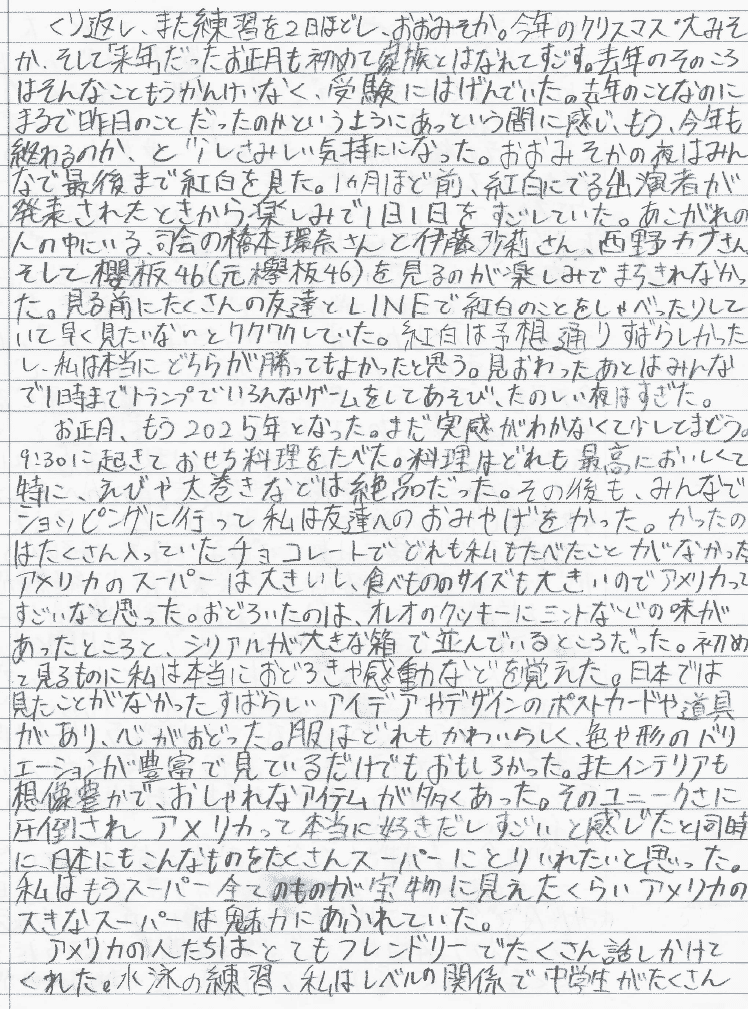 くり返し、また練習を2日ほどし、おおみそか。今年のクリスマス・大みそ
か、そして「来年」だったお正月も初めて家族とはなれてすごす。去年のそのころ
はそんなこともうかんけいなく、受験にはげんでいた。去年のことなのに
まるで昨日のことだったのかというようにあっという間に感じ、もう、今年も
終わるのか、と少しさみしい気持にになった。おおみそかの夜はみん
なで最後まで紅白を見た。1ヵ月ほど前、紅白にでる出演者が
発表されたときから楽しみで1日1日をすごしていた。あこがれの
人の中にいる、司会の橋本環奈さんと伊藤沙莉さん、西野カナさん
そして櫻坂46(元欅坂46)を見るのが楽しみでまちきれなかっ
た。見る前にたくさんの友達とLINEで紅白のことをしゃべったりして
いて早く見たいないとワクワクしていた。紅白は予想通りすばらしかった
し、私は本当にどちらが勝ってもよかったと思う。見おわったあとはみんな
で1時までトランプでいろんなゲームをしてあそび、たのしい夜はすぎた。
お正月、もう2025年となった。まだ実感がわかなくて少してまどう。
9:30に起きておせち料理をたべた。料理はどれも最高においしくて
特に、えびや太巻きなどは絶品だった。その後も、みんなで
ショッピングに行って私は友達へのおみやげをかった。かったの
はたくさん入っていたチョコレートでどれも私もたべたことがなかった
アメリカのスーパーは大きいし、食べもののサイズも大きいのでアメリカって
すごいなと思った。おどろいたのは、オレオのクッキーにミントなどの味が
あったところと、シリアルが大きな箱で並んでいるところだった。初め
て見るものに私は本当におどろきや感動などを覚えた。日本では
見たことがなかったすばらしいアイデアやデザインのポストカードや道具
があり、心がおどった。服はどれもかわいらしく、色や形のバリ
エーションが豊富で見ているだけでもおもしろかった。またインテリアも
想像豊かで、おしゃれなアイテムが多くあった。そのユニークさに
圧倒されアメリカって本当に好きだしすごいと感じたと同時
に、日本にもこんなものをたくさんスーパーにとりいれたいと思った。
私はもうスーパー全てのものが宝物に見えたくらいアメリカの
大きなスーパーは魅力にあふれていた。
アメリカの人たちはとてもフレンドリーでたくさん話しかけて
くれた。水泳の練習、私はレベルの関係で中学生がたくさん